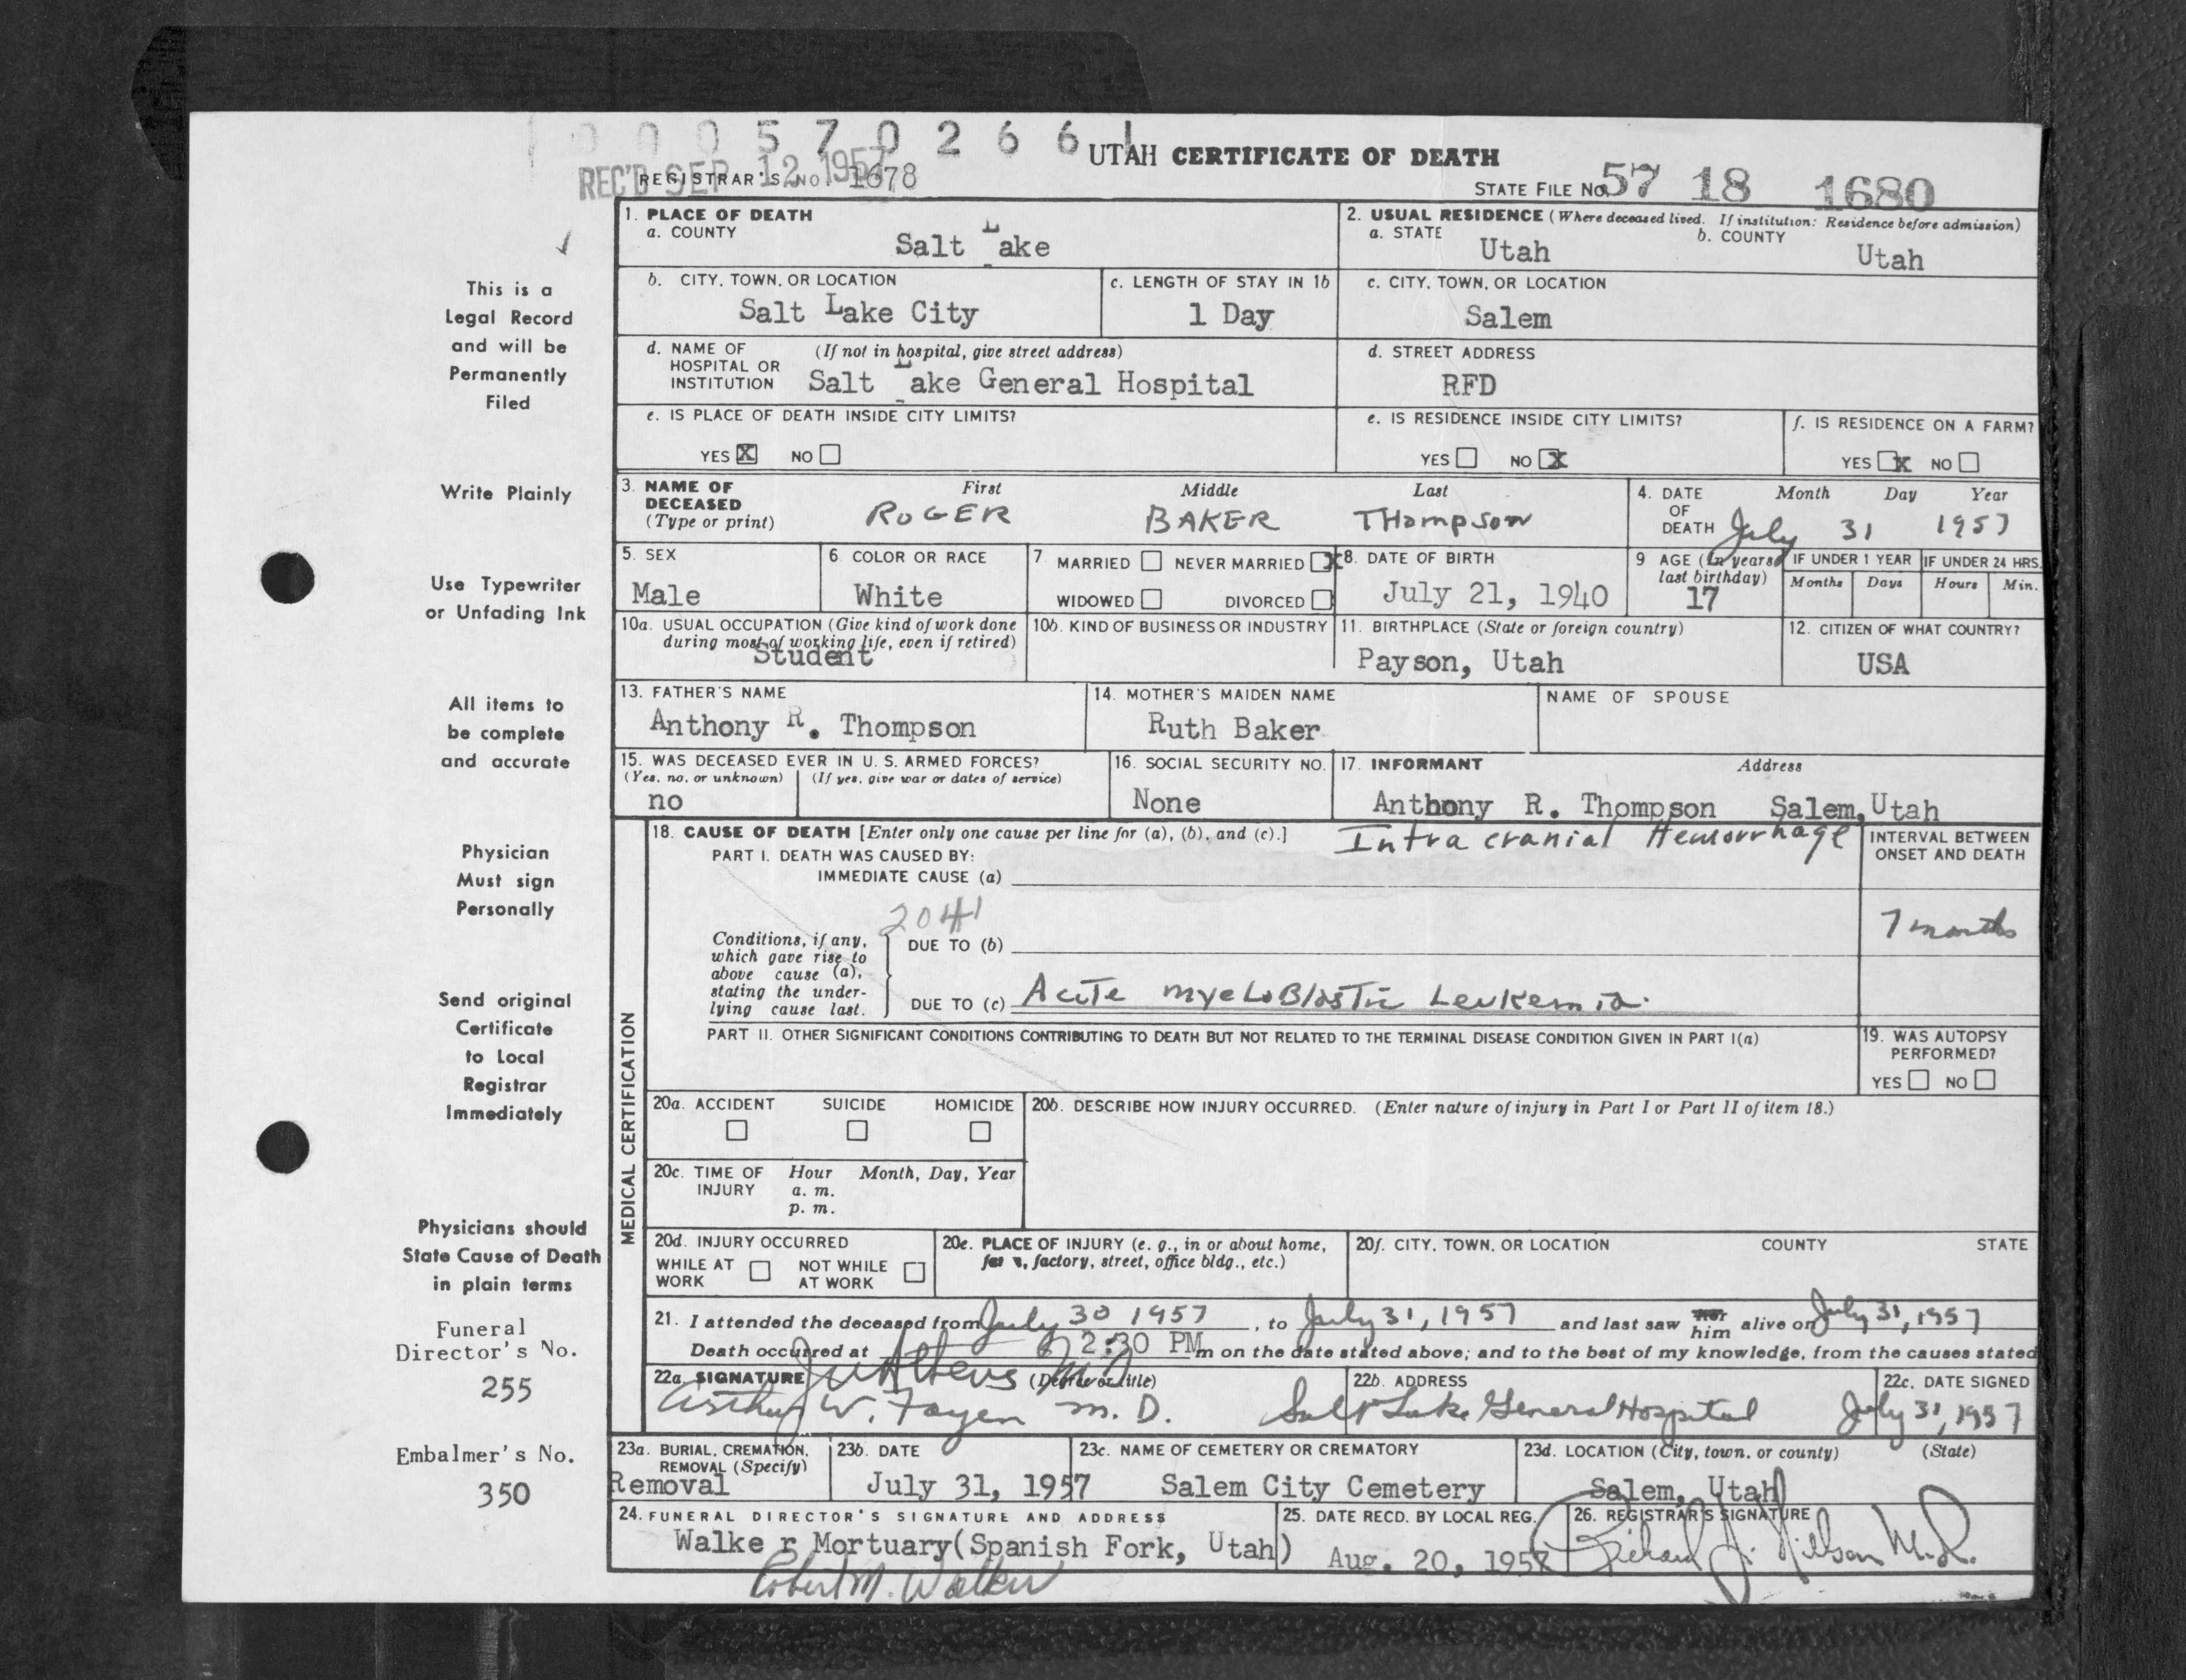 0 0 0 5 7 0 2 6 6 1
UTAH CERTIFICATE OF DEATH
REC'D SEP 12 1957
REGISTRAR'S NO. 1678
STATE FILE NO. 57 18 1680
1. PLACE OF DEATH
a. COUNTY
Salt Lake
2. USUAL RESIDENCE (Where deceased lived. If institution: Residence before admission)
a. STATE
Utah
b. COUNTY
Utah
b. CITY, TOWN, OR LOCATION
Salt Lake City
c. LENGTH OF STAY IN 1b
1 Day
c. CITY, TOWN, OR LOCATION
Salem
d. NAME OF HOSPITAL OR INSTITUTION
(If not in hospital, give street address)
Salt Lake General Hospital
d. STREET ADDRESS
RFD
e. IS PLACE OF DEATH INSIDE CITY LIMITS?
YES X NO
e. IS RESIDENCE INSIDE CITY LIMITS?
YES NO X
f. IS RESIDENCE ON A FARM?
YES X NO
3. NAME OF DECEASED (Type or print)
First Middle Last
ROGER BAKER THOMPSON
4. DATE OF DEATH
Month Day Year
July 31 1957
5. SEX
Male
6. COLOR OR RACE
White
7. MARRIED NEVER MARRIED X
WIDOWED DIVORCED
8. DATE OF BIRTH
July 21, 1940
9 AGE (In years last birthday)
17
IF UNDER 1 YEAR
Months Days
IF UNDER 24 HRS.
Hours Min.
10a. USUAL OCCUPATION (Give kind of work done during most of working life, even if retired)
Student
10b. KIND OF BUSINESS OR INDUSTRY
11. BIRTHPLACE (State or foreign country)
Payson, Utah
12. CITIZEN OF WHAT COUNTRY?
USA
13. FATHER'S NAME
Anthony R. Thompson
14. MOTHER'S MAIDEN NAME
Ruth Baker
NAME OF SPOUSE
15. WAS DECEASED EVER IN U. S. ARMED FORCES?
(Yes, no, or unknown) (If yes, give war or dates of service)
no
16. SOCIAL SECURITY NO.
None
17. INFORMANT Address
Anthony R. Thompson Salem, Utah
MEDICAL CERTIFICATION
18. CAUSE OF DEATH [Enter only one cause per line for (a), (b), and (c).]
PART I. DEATH WAS CAUSED BY:
IMMEDIATE CAUSE (a)
Intra cranial Hemorrhage
INTERVAL BETWEEN ONSET AND DEATH
2041
7 months
Conditions, if any, which gave rise to above cause (a), stating the underlying cause last.
DUE TO (b)
DUE TO (c) Acute myeloBlastic Leukemia.
PART II. OTHER SIGNIFICANT CONDITIONS CONTRIBUTING TO DEATH BUT NOT RELATED TO THE TERMINAL DISEASE CONDITION GIVEN IN PART I(a)
19. WAS AUTOPSY PERFORMED?
YES NO
20a. ACCIDENT SUICIDE HOMICIDE
20b. DESCRIBE HOW INJURY OCCURRED. (Enter nature of injury in Part I or Part II of item 18.)
20c. TIME OF INJURY
Hour Month, Day, Year
a. m.
p. m.
20d. INJURY OCCURRED
WHILE AT WORK NOT WHILE AT WORK
20e. PLACE OF INJURY (e. g., in or about home, factory, street, office bldg., etc.)
20f. CITY, TOWN, OR LOCATION COUNTY STATE
21. I attended the deceased from July 30 1957, to July 31, 1957 and last saw her him alive on July 31, 1957
Death occurred at 2:30 PM m on the date stated above; and to the best of my knowledge, from the causes stated
22a. SIGNATURE (Degree or title)
Arthur W. M. D.
22b. ADDRESS
Salt Lake General Hospital
22c. DATE SIGNED
July 31, 1957
23a. BURIAL, CREMATION, REMOVAL (Specify)
Removal
23b. DATE
July 31, 1957
23c. NAME OF CEMETERY OR CREMATORY
Salem City Cemetery
23d. LOCATION (City, town, or county) (State)
Salem, Utah
24. FUNERAL DIRECTOR'S SIGNATURE AND ADDRESS
Walker Mortuary (Spanish Fork, Utah)
Robert M. Walker
25. DATE RECD. BY LOCAL REG.
Aug. 20, 1957
26. REGISTRAR'S SIGNATURE
Richard J. Nilson M.D.
This is a
Legal Record
and will be
Permanently
Filed
Write Plainly
Use Typewriter
or Unfading Ink
All items to
be complete
and accurate
Physician
Must sign
Personally
Send original
Certificate
to Local
Registrar
Immediately
Physicians should
State Cause of Death
in plain terms
Funeral
Director's No.
255
Embalmer's No.
350